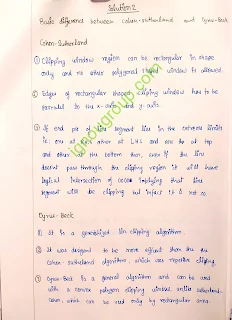 Solution 2
Basic difference between cohen-sutherland and Cyrus-Beck
Cohen-Sutherland
① Clipping window region can be rectangular in shape
only and no other polygonal shaped window is allowed.
② Edges of rectangular shaped clipping window has to be
parallel to the x-axis and y-axis.
③ If end pts of line segment lies in the extreme limits
i.e; one at R.H.S other at L.H.S and one the at top
and other at the bottom then, even if the line
doesnt pass through the clipping region it will have
logical intersection of 0000 implying that line
segment will be clipped but infact it is not so.
Cyrus-Beck
① It is a generalized line clipping algorithm.
② It was designed to be more efficient than the
Cohen-sutherland algorithm, which uses repetitive clipping.
③ Cyrus-Beck is a general algorithm and can be used
with a convex polygon clipping window, unlike sutherland-
cohen which can be used only by rectangular area.
upvoygroup.com